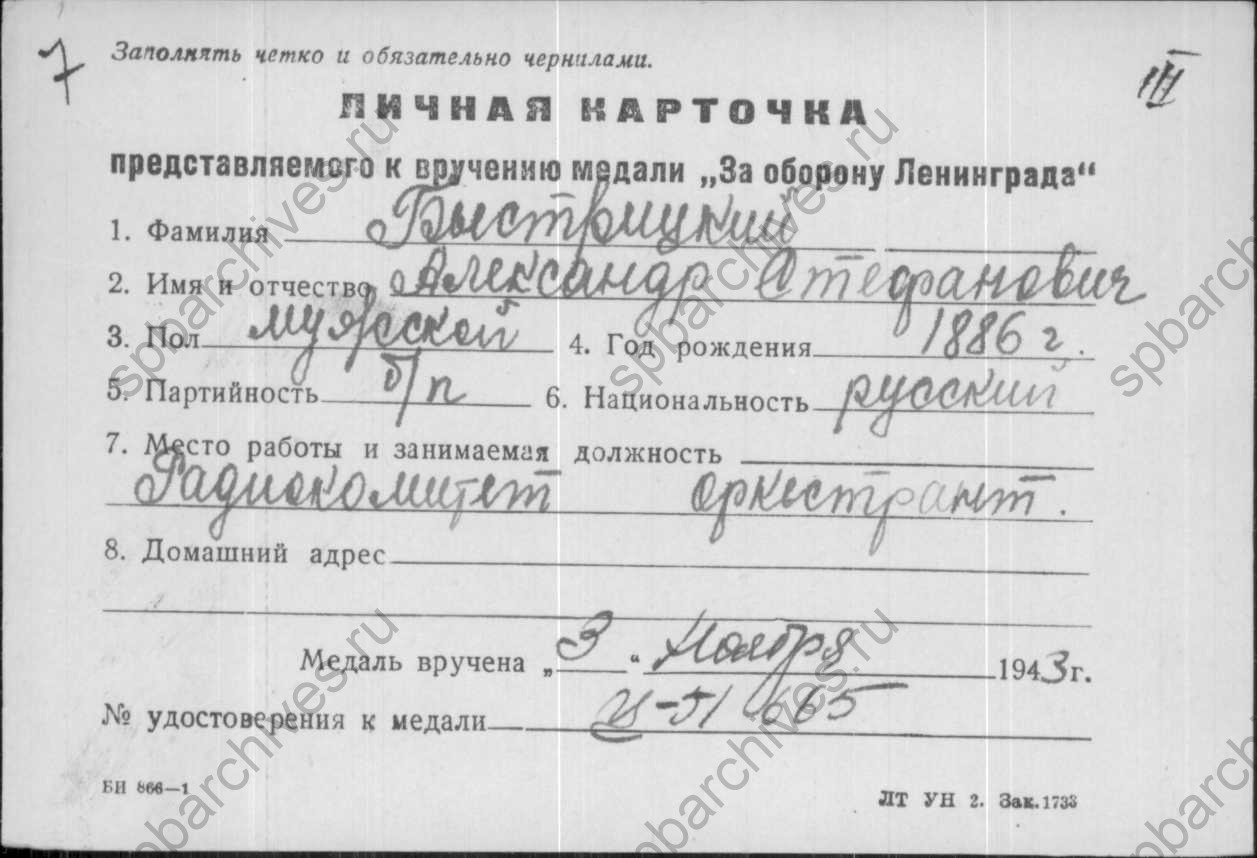 7
Заполнять четко и обязательно чернилами.
III
ЛИЧНАЯ КАРТОЧКА
представляемого к вручению медали „За оборону Ленинграда“
1. Фамилия Быстрицкий
2. Имя и отчество Александр Стефанович
3. Пол мужской 4. Год рождения 1886 г.
5. Партийность б/п 6. Национальность русский
7. Место работы и занимаемая должность
Радиокомитет оркестрант.
8. Домашний адрес
Медаль вручена „3“ Ноября 1943 г.
№ удостоверения к медали 51665
БИ 866—1 ЛТ УН 2. Зак. 1733
spbarchives.ru